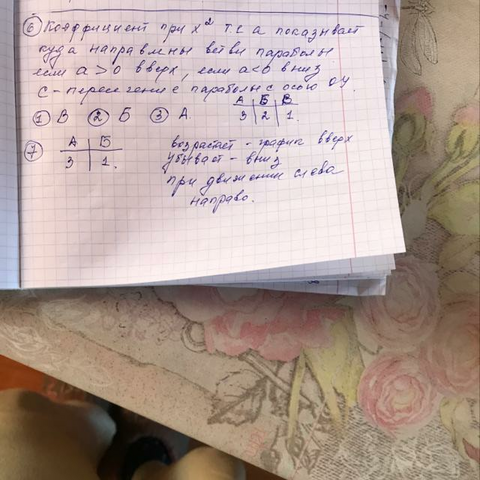 ⑥ Коэффициент при x² т е а показывает
куда направлены ветви параболы
если а > 0 вверх, если а < 0 вниз
с - пересечение параболы с осью оу.
① В ② Б ③ А.
А Б В
3 2 1.
⑦ А Б
3 1.
возрастает - график вверх
убывает - вниз
при движении слева
направо.